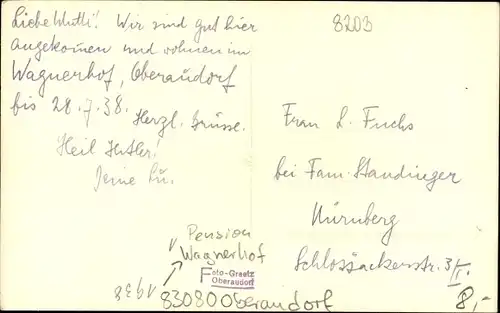 Liebe Mutti! Wir sind gut hier
angekommen und wohnen im
Wagnerhof, Oberaudorf
bis 28.7.38. Herzl. Grüsse.
Heil Hitler!
8203
Frau L. Fuchs
bei Fam. Standinger
Nürnberg
Schlossäckerstr. 3/I.
Pension
Wagnerhof
Foto-Graetz
Oberaudorf
1938
83080 Oberaudorf
8,-